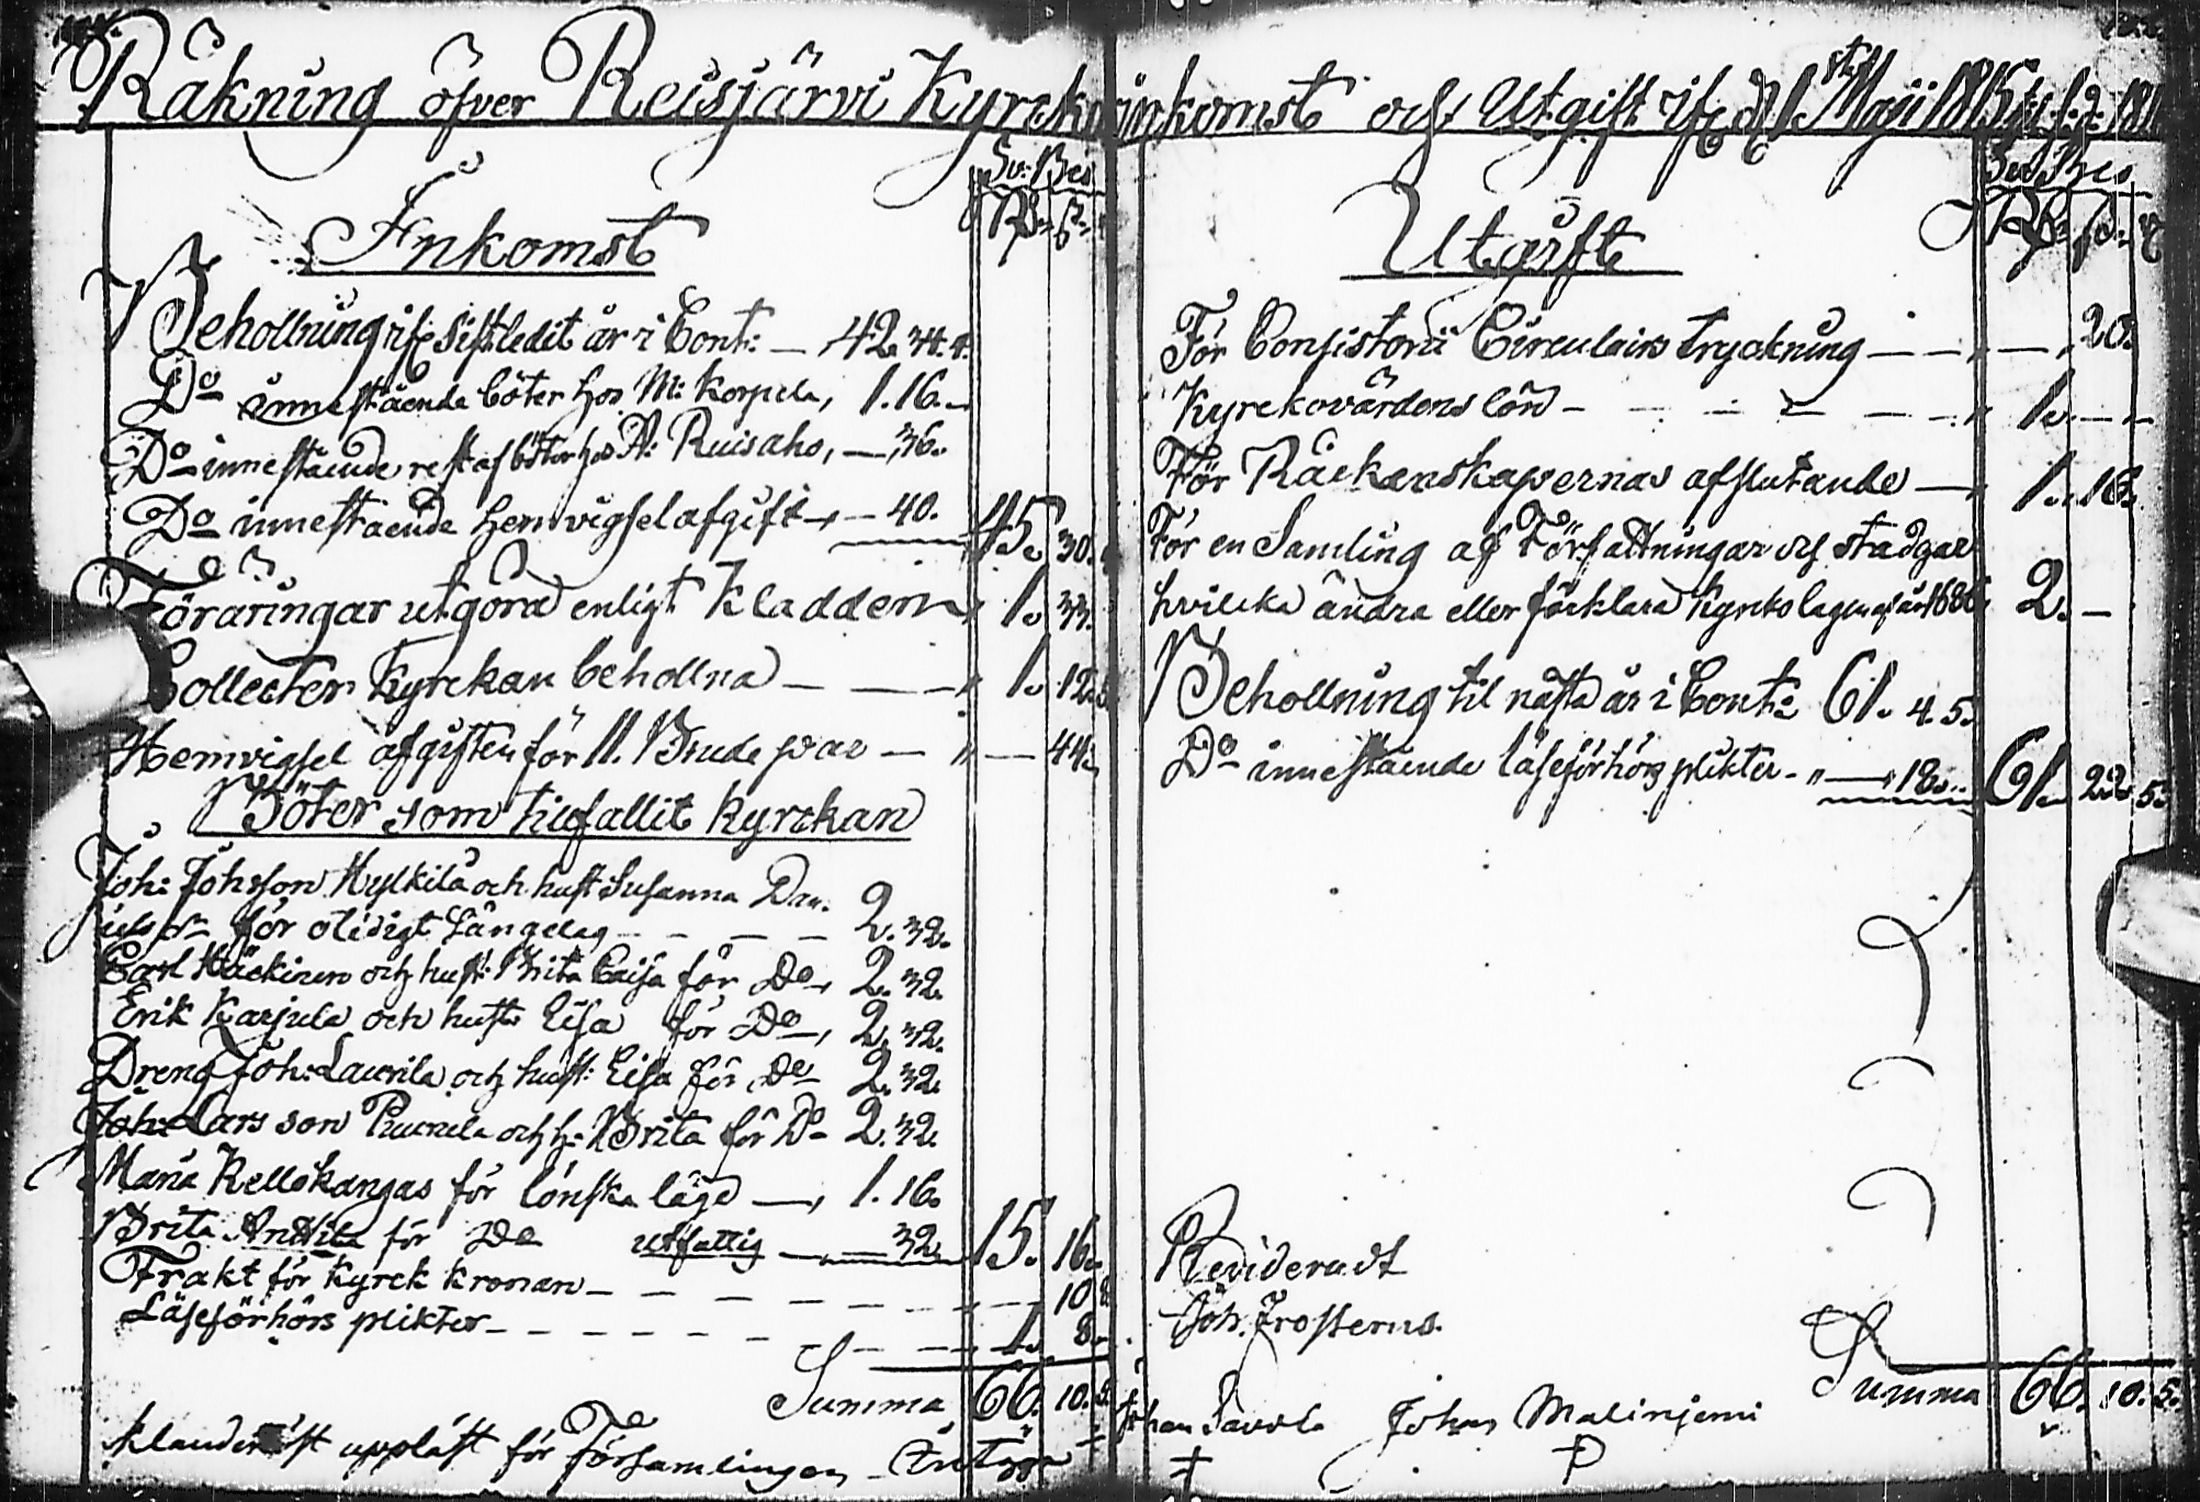 Räkning öfver Reisjärvi Kyrcko inkomst och Utgift ifr. d. 1 st Maji 1815 til d. 1
Inkomst
Sv: Bco
Behollning ifr. sistledit år i Cont: — 42. 34. 4.
Do innestående böter hos M: Korpela, 1. 16. —
Do innestående rest af böter hos A: Ruisaho, — 36.
Do innestående hemvigselafgift — 40. 45. 30.
Föräringar utgöra enligt Kladdern 1. 33.
Collecter Kyrckan behollna — — — 1. 12.
Hemvigsel afgiften för 11. Brude par — " — 44.
Böter som tilfallit Kyrckan
Joh: Johsson Hylkilä och hust Susanna
för olidigt Sängelag — — — 2. 32.
Carl Häckinen och hust: Brita Caisa för Do 2. 32.
Erik Karjula och hust: Lisa för Do, 2. 32.
Dreng Joh: Laurila och hust: Lisa för Do 2. 32.
Joh: Lars son Puurula och h: Brita för Do 2. 32.
Maria Kellokangas för lönska läge —, 1. 16.
Brita Anttila för Do utfattig — 32. 15. 16.
Frakt för Kyrck kronan — — — — 10
Läseförhörs plikter — — — — 1. 8.
Summa 66. 10. 5.
uppläst för Församlingen
Utgift
Sv: Bco
För Consistorii Circulairs tryckning — — " — " 20.
Kyrckovärdens lön — — — — — " 1. — —
För Räckenskapernas afslutande — " 1. 16.
För en Samling af Författningar och stadgar
hvilcka ändra eller förklara Kyrcko lagen af år 1686 2. —
Behollning til nästa år i Cont: 61. 4. 5.
Do innestående läseförhörs plikter — " — 18. 61. 22. 5.
Revideradt
Joh. Frosterus.
Summa 66. 10. 5.
Johan Savola Johan Malinjemi